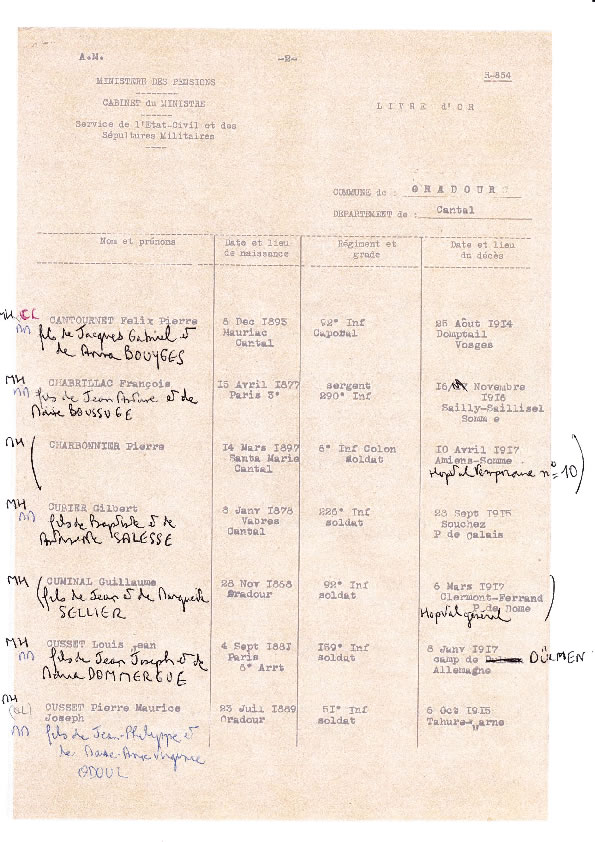 A.M. -2- R-854
MINISTERE DES PENSIONS
CABINET du MINISTRE
LIVRE d'OR
Service de l'Etat-Civil et des
Sépultures Militaires
COMMUNE de : ORADOUR
DEPARTEMENT de : Cantal
Nom et prénoms Date et lieu de naissance Régiment et grade Date et lieu du décès
MH CL CANTOURNET Felix Pierre 8 Dec 1893 92° Inf 25 Août 1914
fils de Jacques Gabriel et Mauriac Caporal Domptail
de Anna BOUYGES Cantal Vosges
MH CHABRILLAC François 15 Avril 1877 sergent Novembre
fils de et de Paris 3° 290° Inf 1916
Marie BOUSSUGE Sailly-Saillisel
Somme
MH CHARBONNIER Pierre 14 Mars 1897 Inf Colon 10 Avril 1917
Santa Marie soldat Amiens-Somme
Cantal Hopital temporaire n° 10
MH CUBIER Gilbert 8 Janv 1878 226° Inf 28 Sept 1915
fils de Baptiste et de Vabres soldat Souchez
Antoinette SALESSE Cantal P de Calais
MH CUMINAL Guillaume 28 Nov 1868 92° Inf 6 Mars 1917
fils de Jean et de Marguerite Oradour soldat Clermont-Ferrand
SELLIER P de Dome
Hopital général
MH CUSSET Louis Jean 4 Sept 1881 139° Inf 8 Janv 1917
fils de Jean Joseph et de Paris soldat camp de DÜLMEN
Maria DOMMERGUE 6° Arrt Allemagne
MH CUSSET Pierre Maurice 23 Juil 1889 51° Inf 6 Oct 1915
Joseph Oradour soldat Tahure-Marne
fils de Jean-Philippe et
de Marie-Anne Virginie
ODOUL